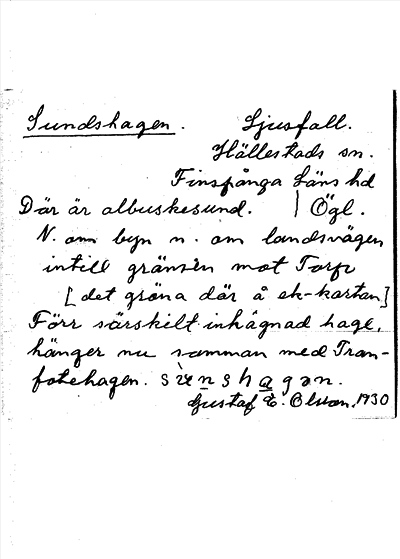 Sundshagen. Ljusfall.
Hällestads sn.
Finspånga läns hd
Där är albuskesund. | Ögl.
N. om byn n. om landsvägen
intill gränsen mot Torp
[det gröna där å ek-kartan]
Förr särskilt inhägnad hage,
hänger nu samman med Tran-
fotehagen.
Gustaf E. Olson. 1930